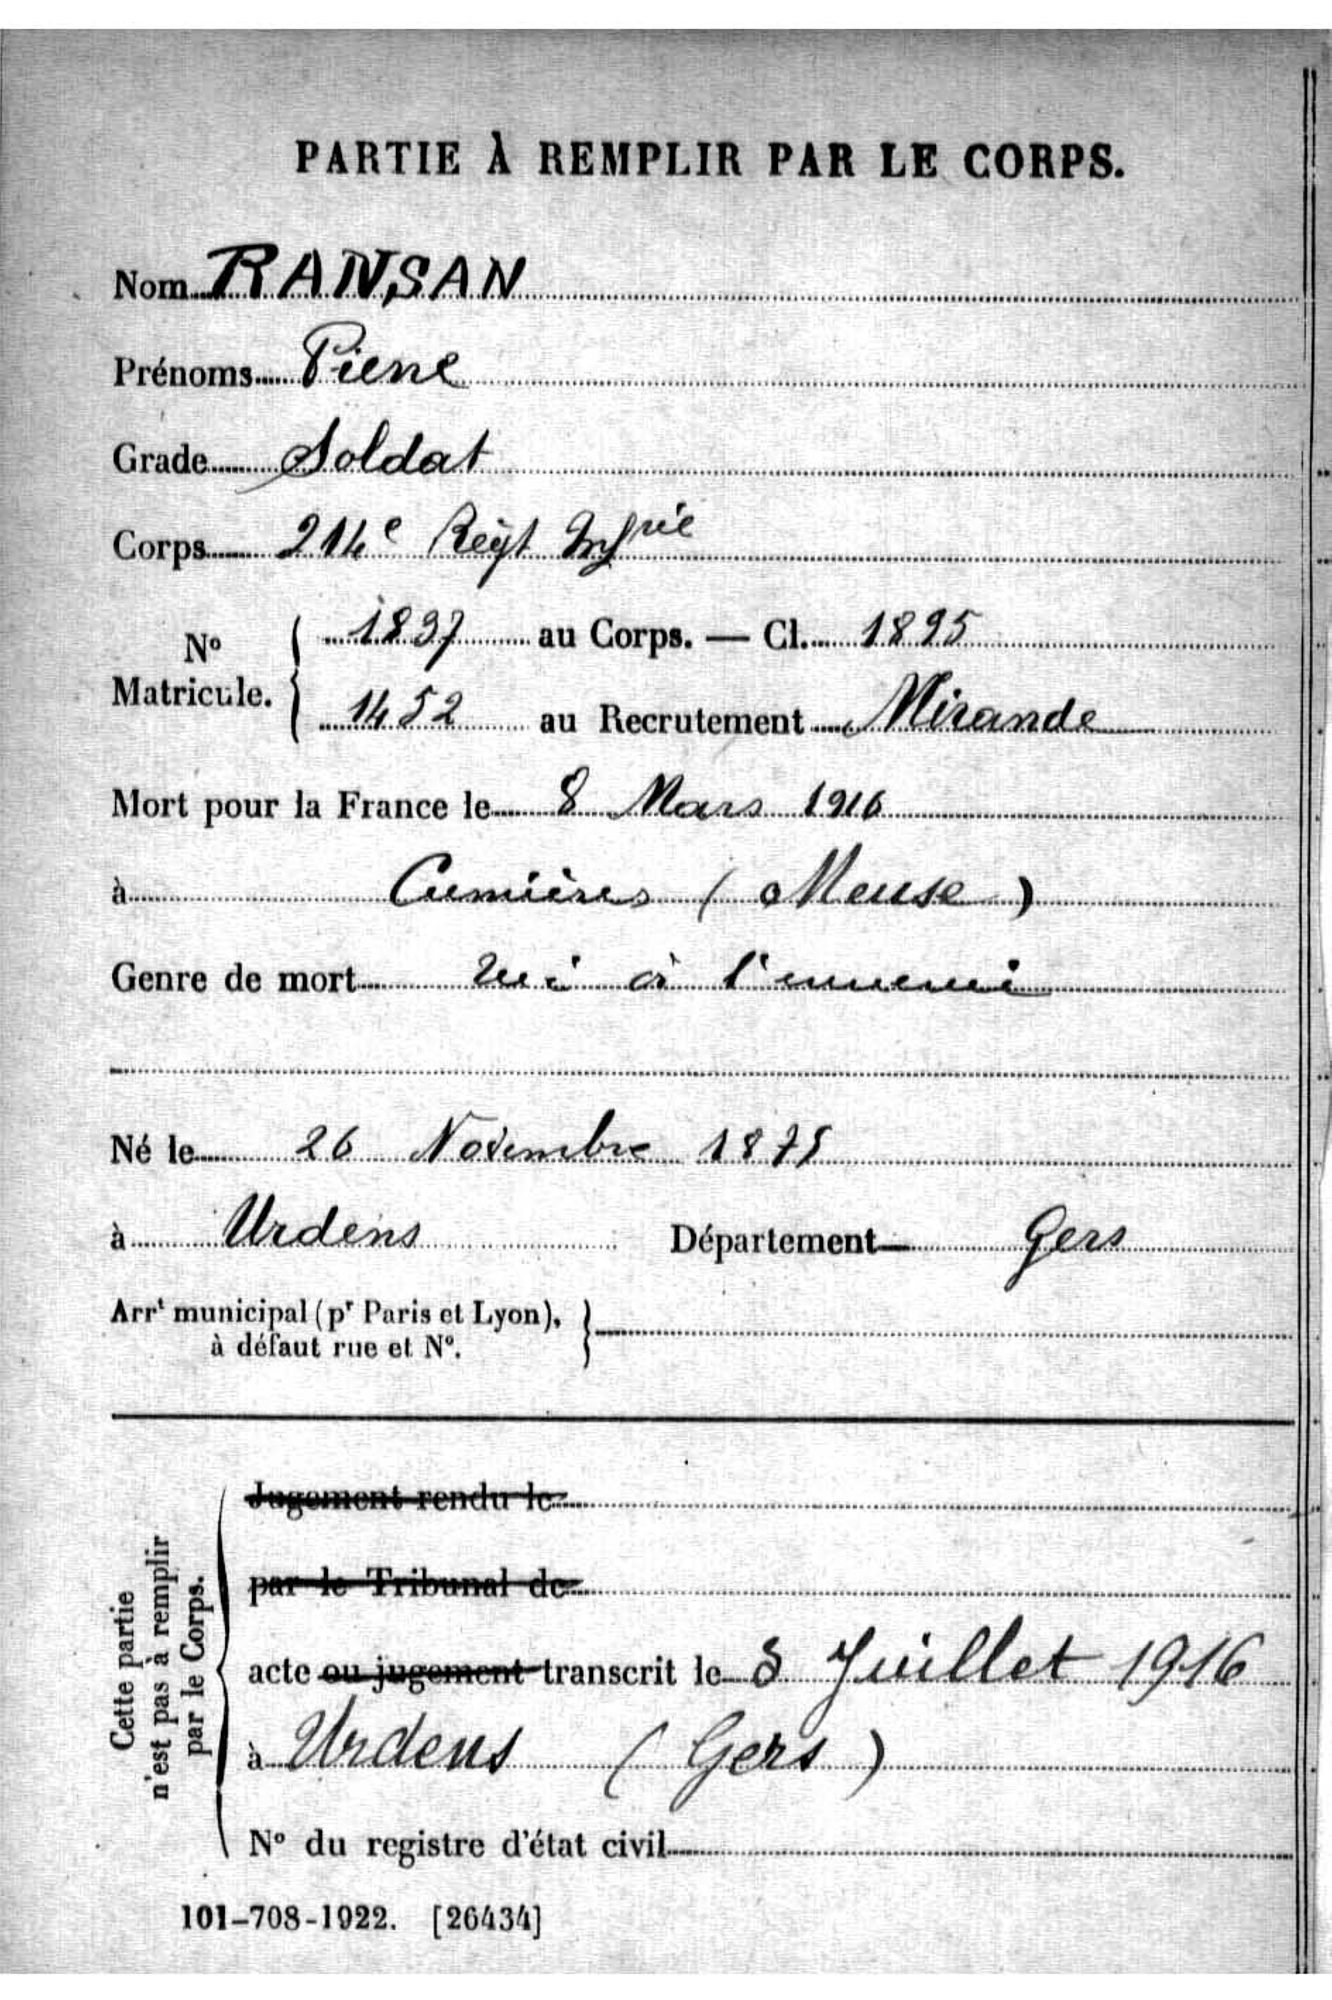 PARTIE À REMPLIR PAR LE CORPS.
Nom RANSAN
Prénoms Pierre
Grade Soldat
Corps 214e Regt Infrie
No Matricule. 1897 au Corps. — Cl. 1895
1452 au Recrutement Mirande
Mort pour la France le 8 Mars 1916
à Cumières (Meuse)
Genre de mort Tué à l'ennemi
Né le 26 Novembre 1875
à Urdens Département Gers
Arrt municipal (pr Paris et Lyon),
à défaut rue et No.
Cette partie
n'est pas à remplir
par le Corps.
Jugement rendu le
par le Tribunal de
acte ou jugement transcrit le Juillet 1916
à Urdens (Gers)
No du registre d'état civil
101-708-1922. [26434]